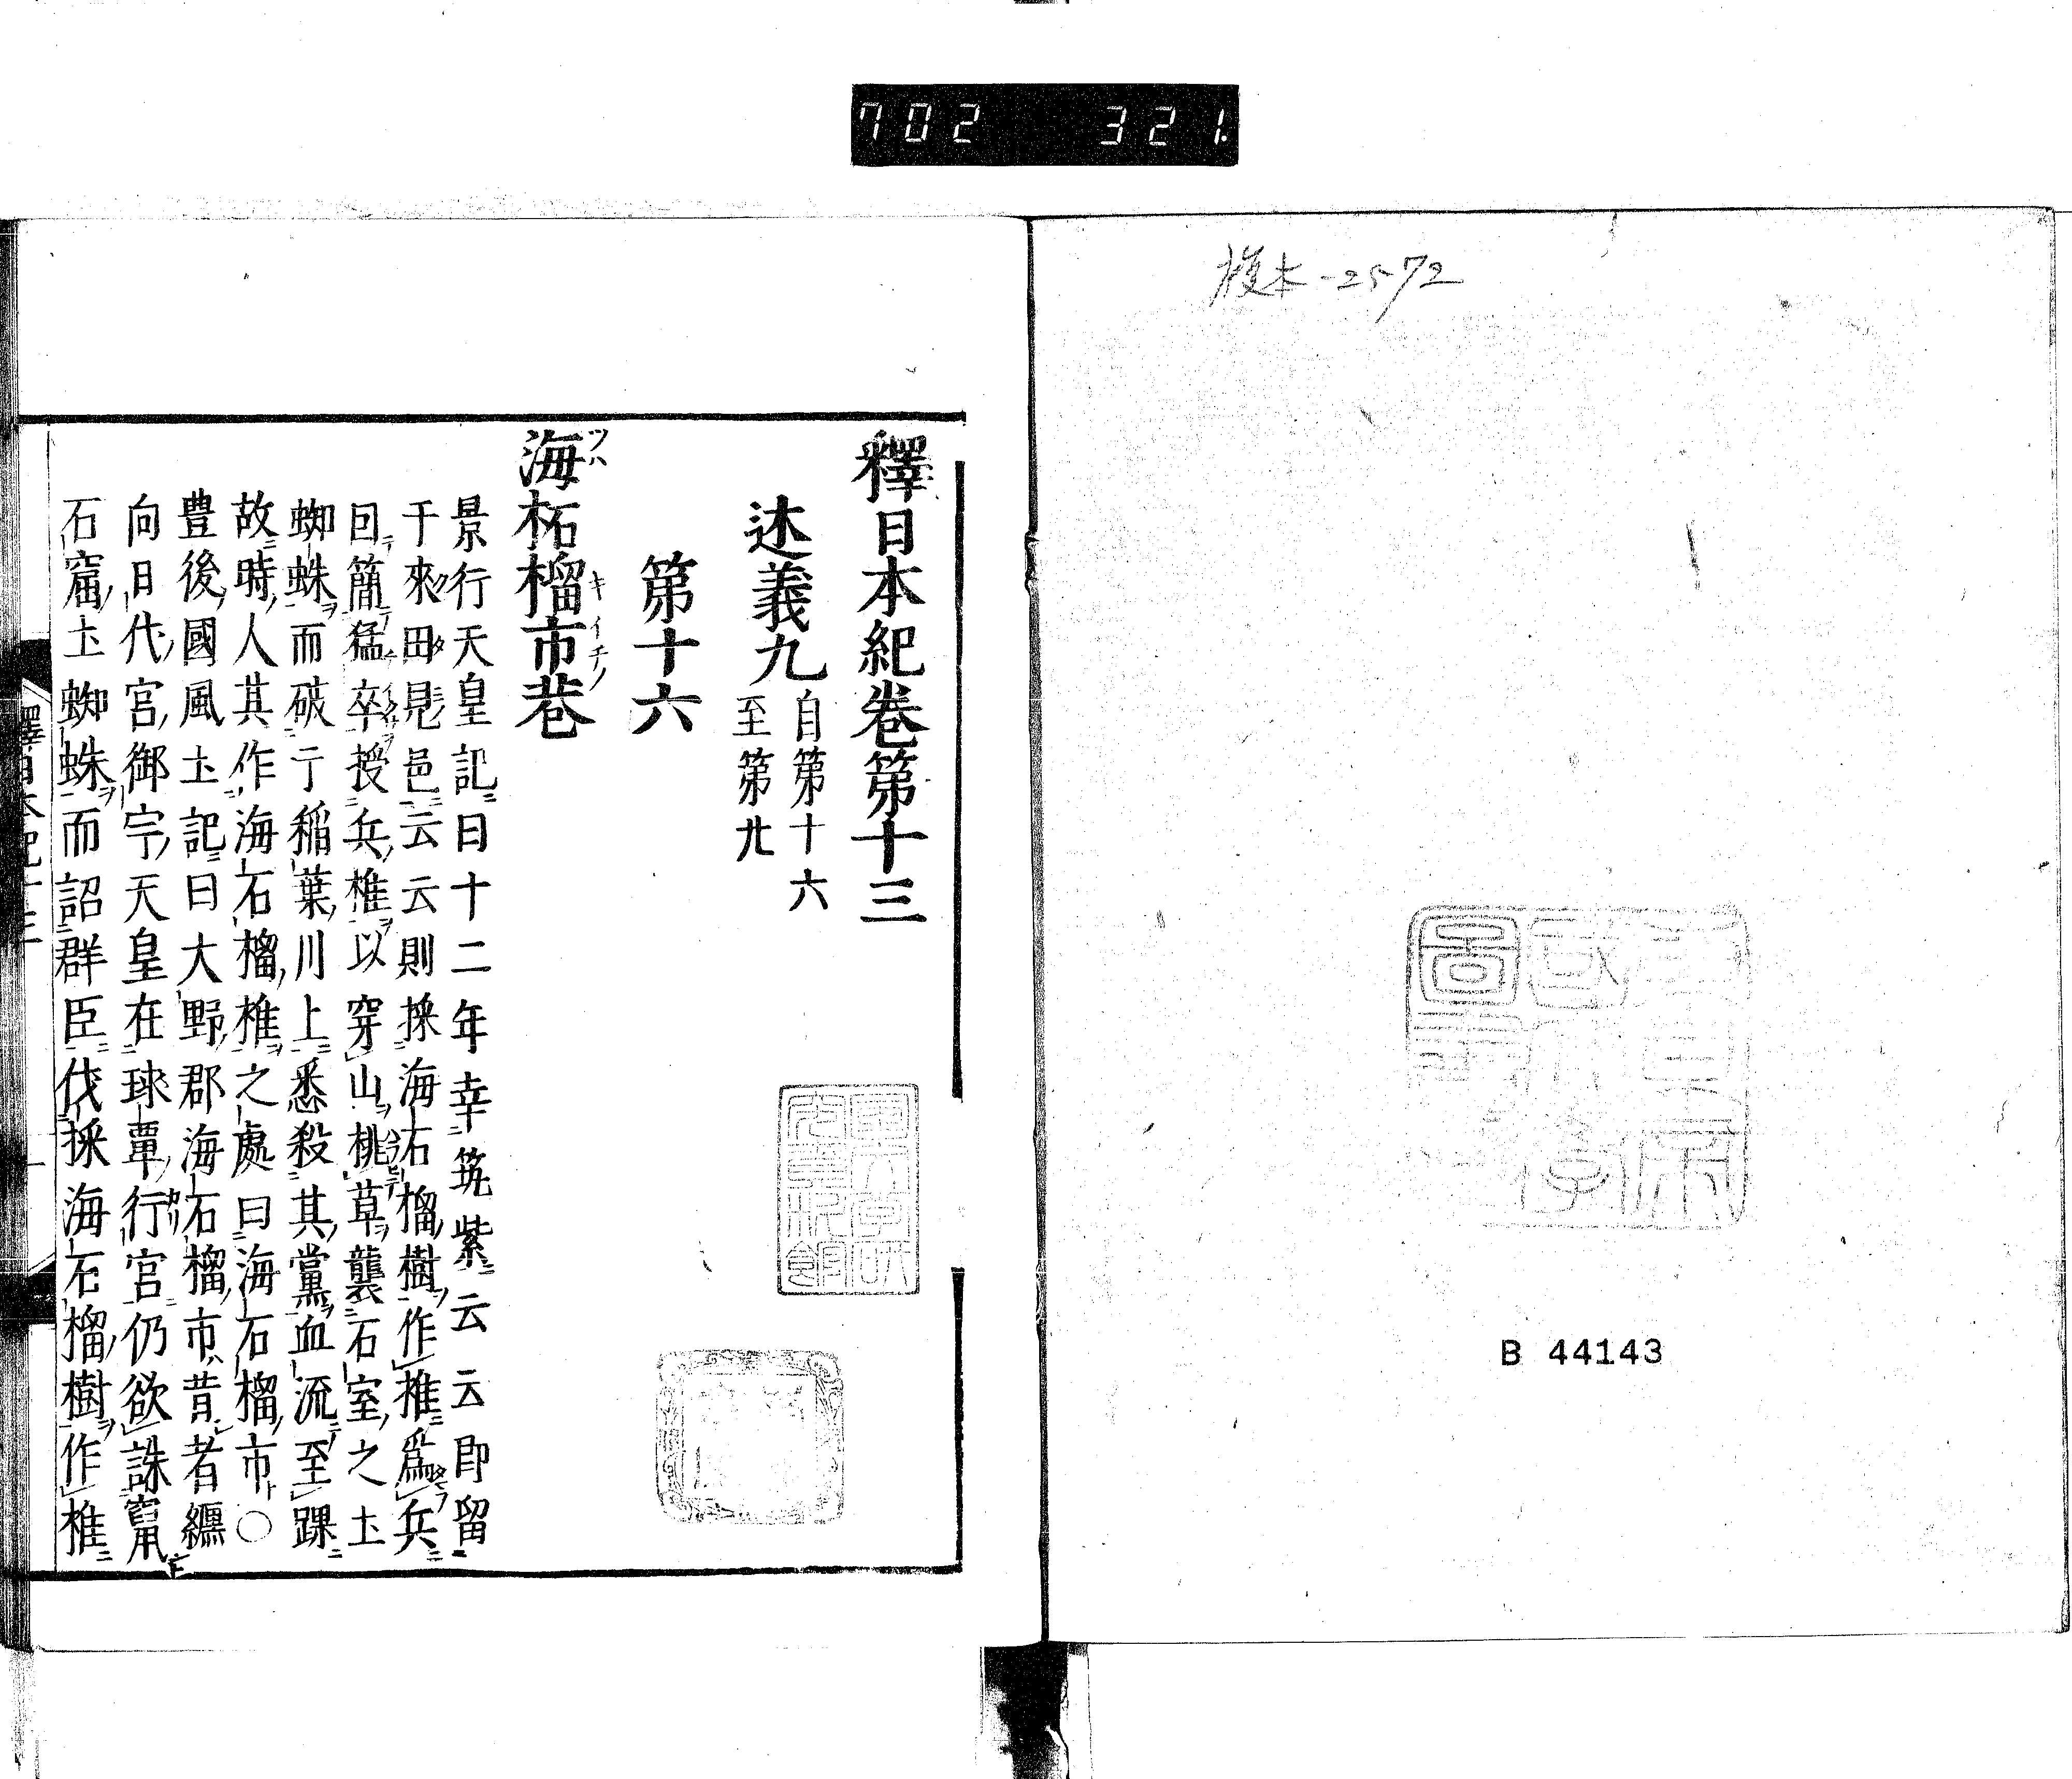 702 321
複本-2572
B 44143
釋日本紀卷第十三
述義九
自第十六
至第廿
第十六
海柘榴市巷
景行天皇記曰十二年幸筑紫云云即留
于來田見邑云云則採海石榴樹作推爲兵
囙簡猛卒授兵椎以穿山桃草襲石室之土
蜘蛛而破于稲葉川上悉殺其黨血流至踝
故時人其作海石榴椎之處曰海石榴市〇
豊後國風土記曰大野郡海石榴市昔者纒
向日代宮御宇天皇在球覃行宮仍欲誅竄
石窟土蜘蛛而詔群臣伐採海石榴樹作椎